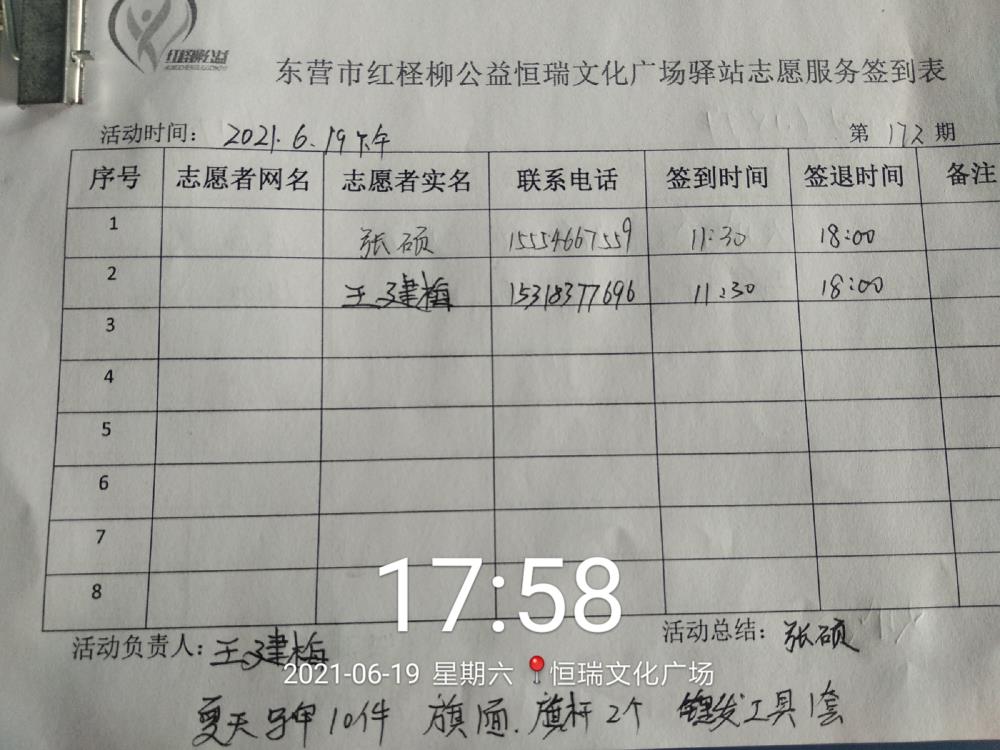 红柽柳公益
东营市红柽柳公益恒瑞文化广场驿站志愿服务签到表
活动时间： 2021.6.19下午 第172期
序号 志愿者网名 志愿者实名 联系电话 签到时间 签退时间 备注
1 张硕 15554667559 11:30 18:00
2 王建梅 15318377696 11:30 18:00
3
4
5
6
7
8
17:58
活动负责人：王建梅 活动总结：张硕
2021-06-19 星期六 恒瑞文化广场
夏天 10件 旗1面. 旗杆2个 理发工具1套